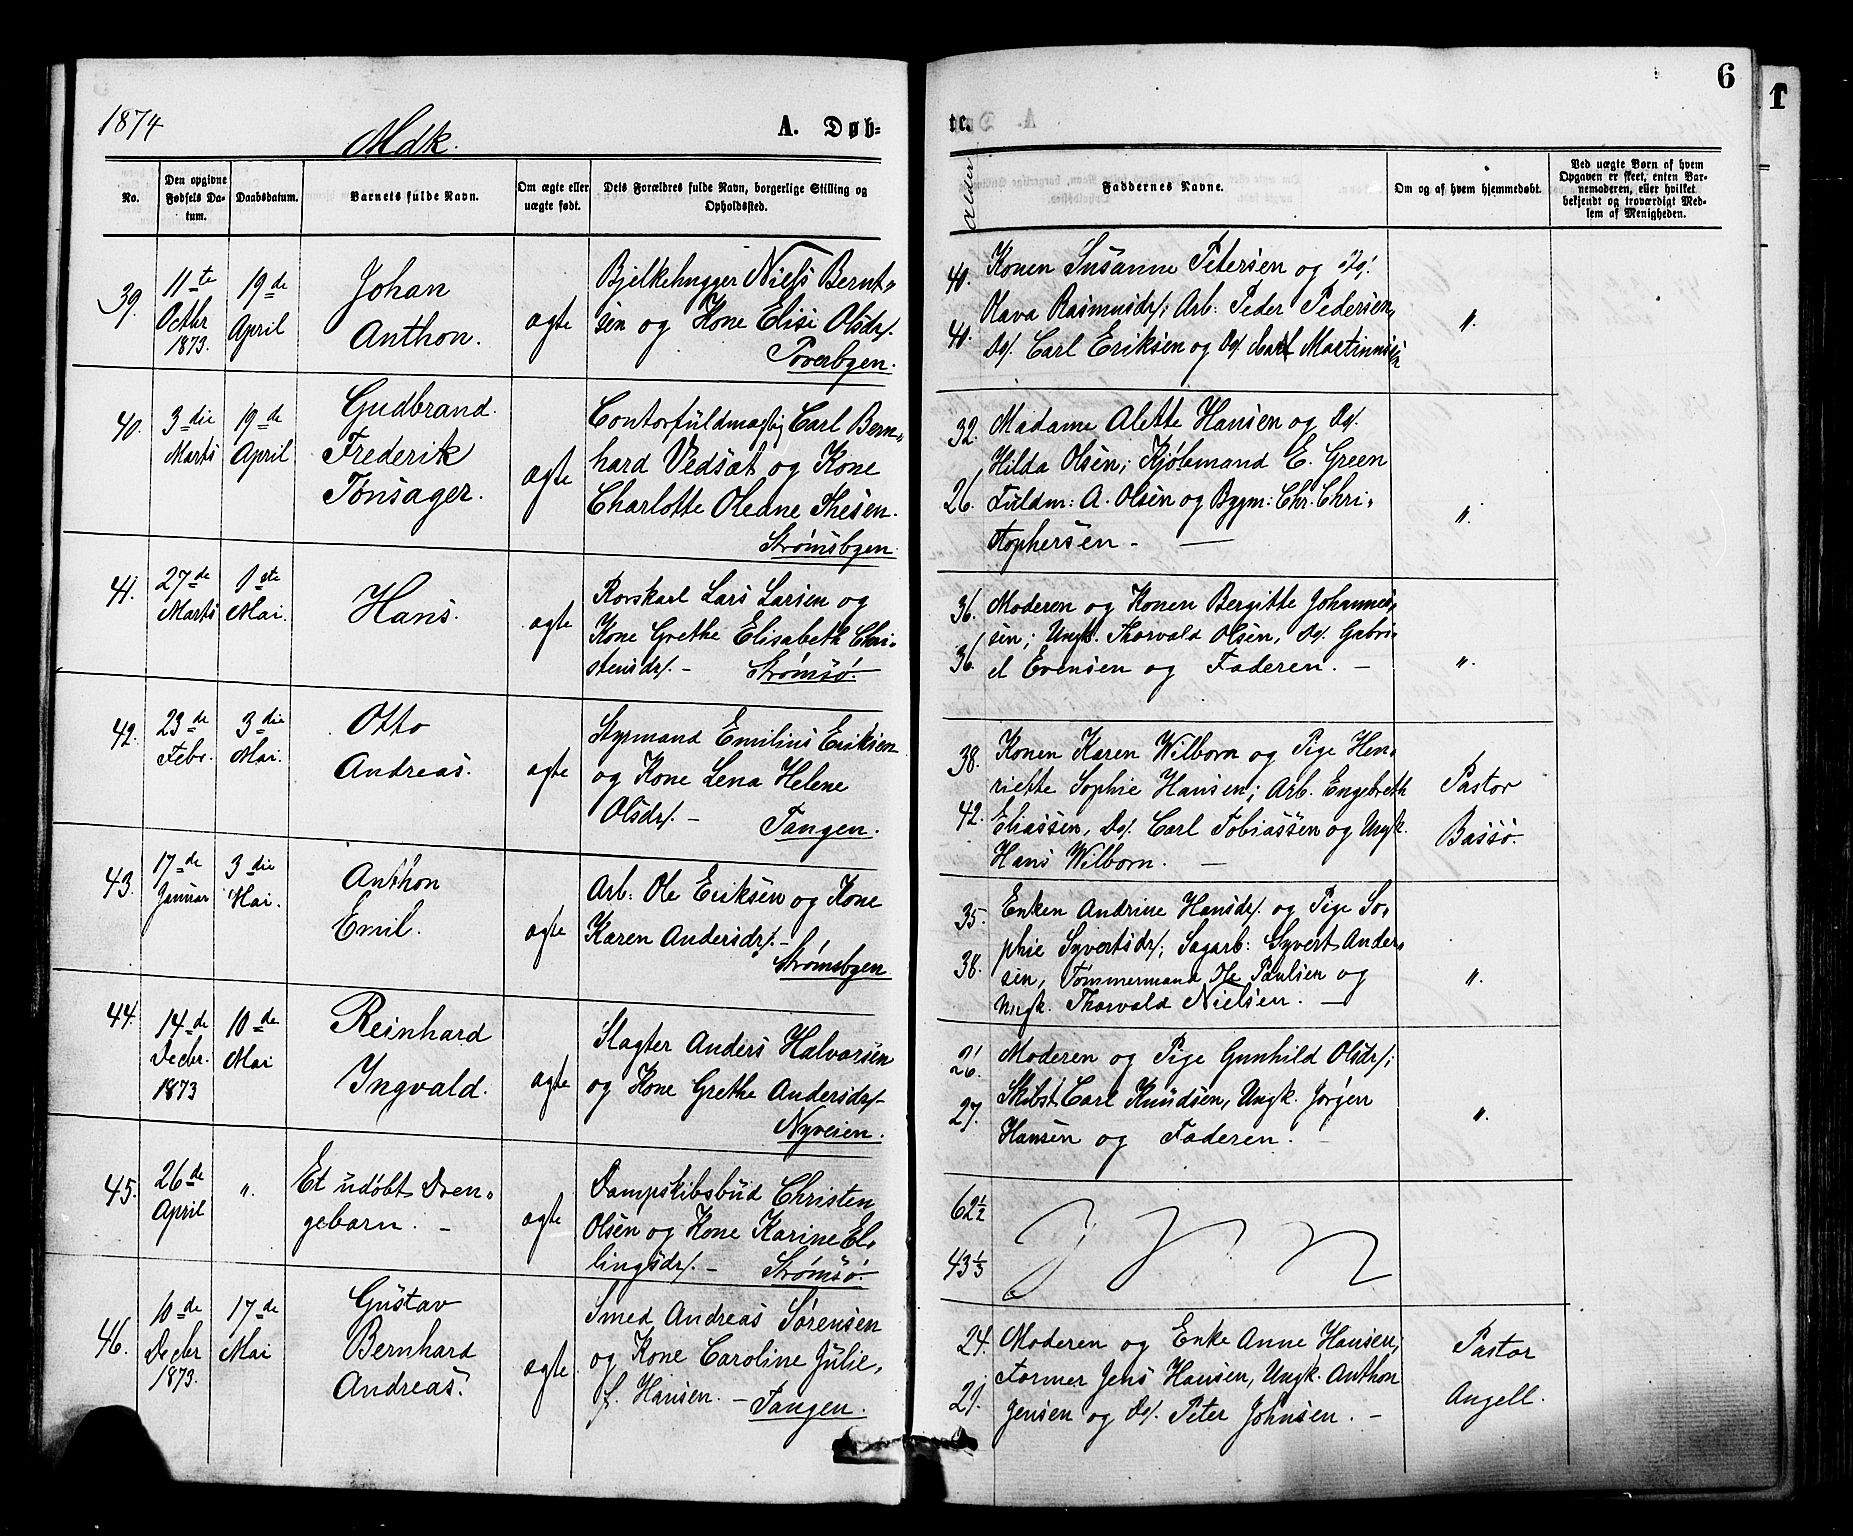 1874
Mdk.
A. Døb-
te.
6
1
No.
Den opgivne Fødsels Da-tum.
Daabsdatum.
Barnets fulde Navn.
Om ægte eller uægte født.
Dets Forældres fulde Navn, borgerlige Stilling og Opholdssted.
Alder
Faddernes Navne.
Om og af hvem hjemmedøbt.
Ved uægte Børn af hvem Opgaven er skeet, enten Bar-nemoderen, eller hvilket bekjendt og troværdigt Med-lem af Menigheden.
39.
11te
Octbr
1873.
19de
April
Johan
Anthon.
ægte
Bjelkehugger Niels Bernt-
sen og Kone Elisi Olsdr/.
Toverbgen.
40.
41.
Konen Susanne Petersen og Do/.
Olava Rasmusdr/; Arb: Peder Pedersen,
Do/. Carl Eriksen og Do/ Carl Martinnisen
"
40.
3die
Marts
19de
April
Gudbrand
Frederik
Tonsager.
ægte
Contorfuldmægtig Carl Bern-
hard Vedsæt og Kone
Charlotte Oleane Thesen.
Strømsbgen.
32.
26.
Madame Alette Hansen og Do/.
Hilda Olsen; Kjøbmand E. Green
Fuldm: A. Olsen og Bygm: Chr. Chri-
stophersen -
"
41.
27de
Marts
1ste
Mai.
Hans.
ægte
Rorskarl Lars Larsen og
Kone Grethe Elisabeth Chri-
stensdr/. - Strømsø.
36.
36/
Moderen og Konen Bergitte Johannes-
sen; Ungk. Thorvald Olsen, Do/. Gabri-
el Evensen og Faderen. -
"
42.
23de
Febr.
3die
Mai.
Otto
Andreas.
ægte
Styrmand Emilius Eriksen
og Kone Lena Helene
Olsdr/. - Tangen.
38.
42.
Konen Karen Wilborn og Pige Hen-
riette Sophie Hansen; Arb. Engebreth
Eliassen, Do/. Carl Tobiassen og Ungk.
Hans Wilborn. -
Pastor
Bassø.
43.
17de
Januar
3die
Mai.
Anthon
Emil.
ægte
Arb: Ole Eriksen og Kone
Karen Andersdr/. -
Strømsbgen
35.
38.
Enken Andrine Hansdr/. og Pige So-
phie Syvertsdr/; Sagarb: Syvert Ander-
sen, Tømmermand Ole Paulsen og
Ungk. Thorvald Nielsen. -
"
44.
14de
Decbr.
1873
10de
Mai
Reinhard
Ingvald.
ægte
Slagter Anders Halvorsen
og Kone Grethe Andersdr/-
Nyveien.
26.
27.
Moderen og Pige Gunhild Olsdr/;
Skibst. Carl Knudsen, Ungk. Jørgen
Hansen og Faderen.
"
45.
26de
April
"
Et udøbt Dren-
gebarn. -
ægte
Dampskibsbud Christen
Olsen og Kone Karine El-
lingsdr/. - Strømsø.
62 1/2
43 1/3
46.
10de
Decbr
1873.
17de
Mai
Gustav
Bernhard
Andreas.
ægte
Smed Andreas Sørensen
og Kone Caroline Julie,
f. Hansen. - Tangen.
24.
21.
Moderen og Enke Anne Hansen,
Former Jens Hansen, Ungk. Anthon
Jensen og Do/. Peter Johnsen. -
Pastor
Angell.